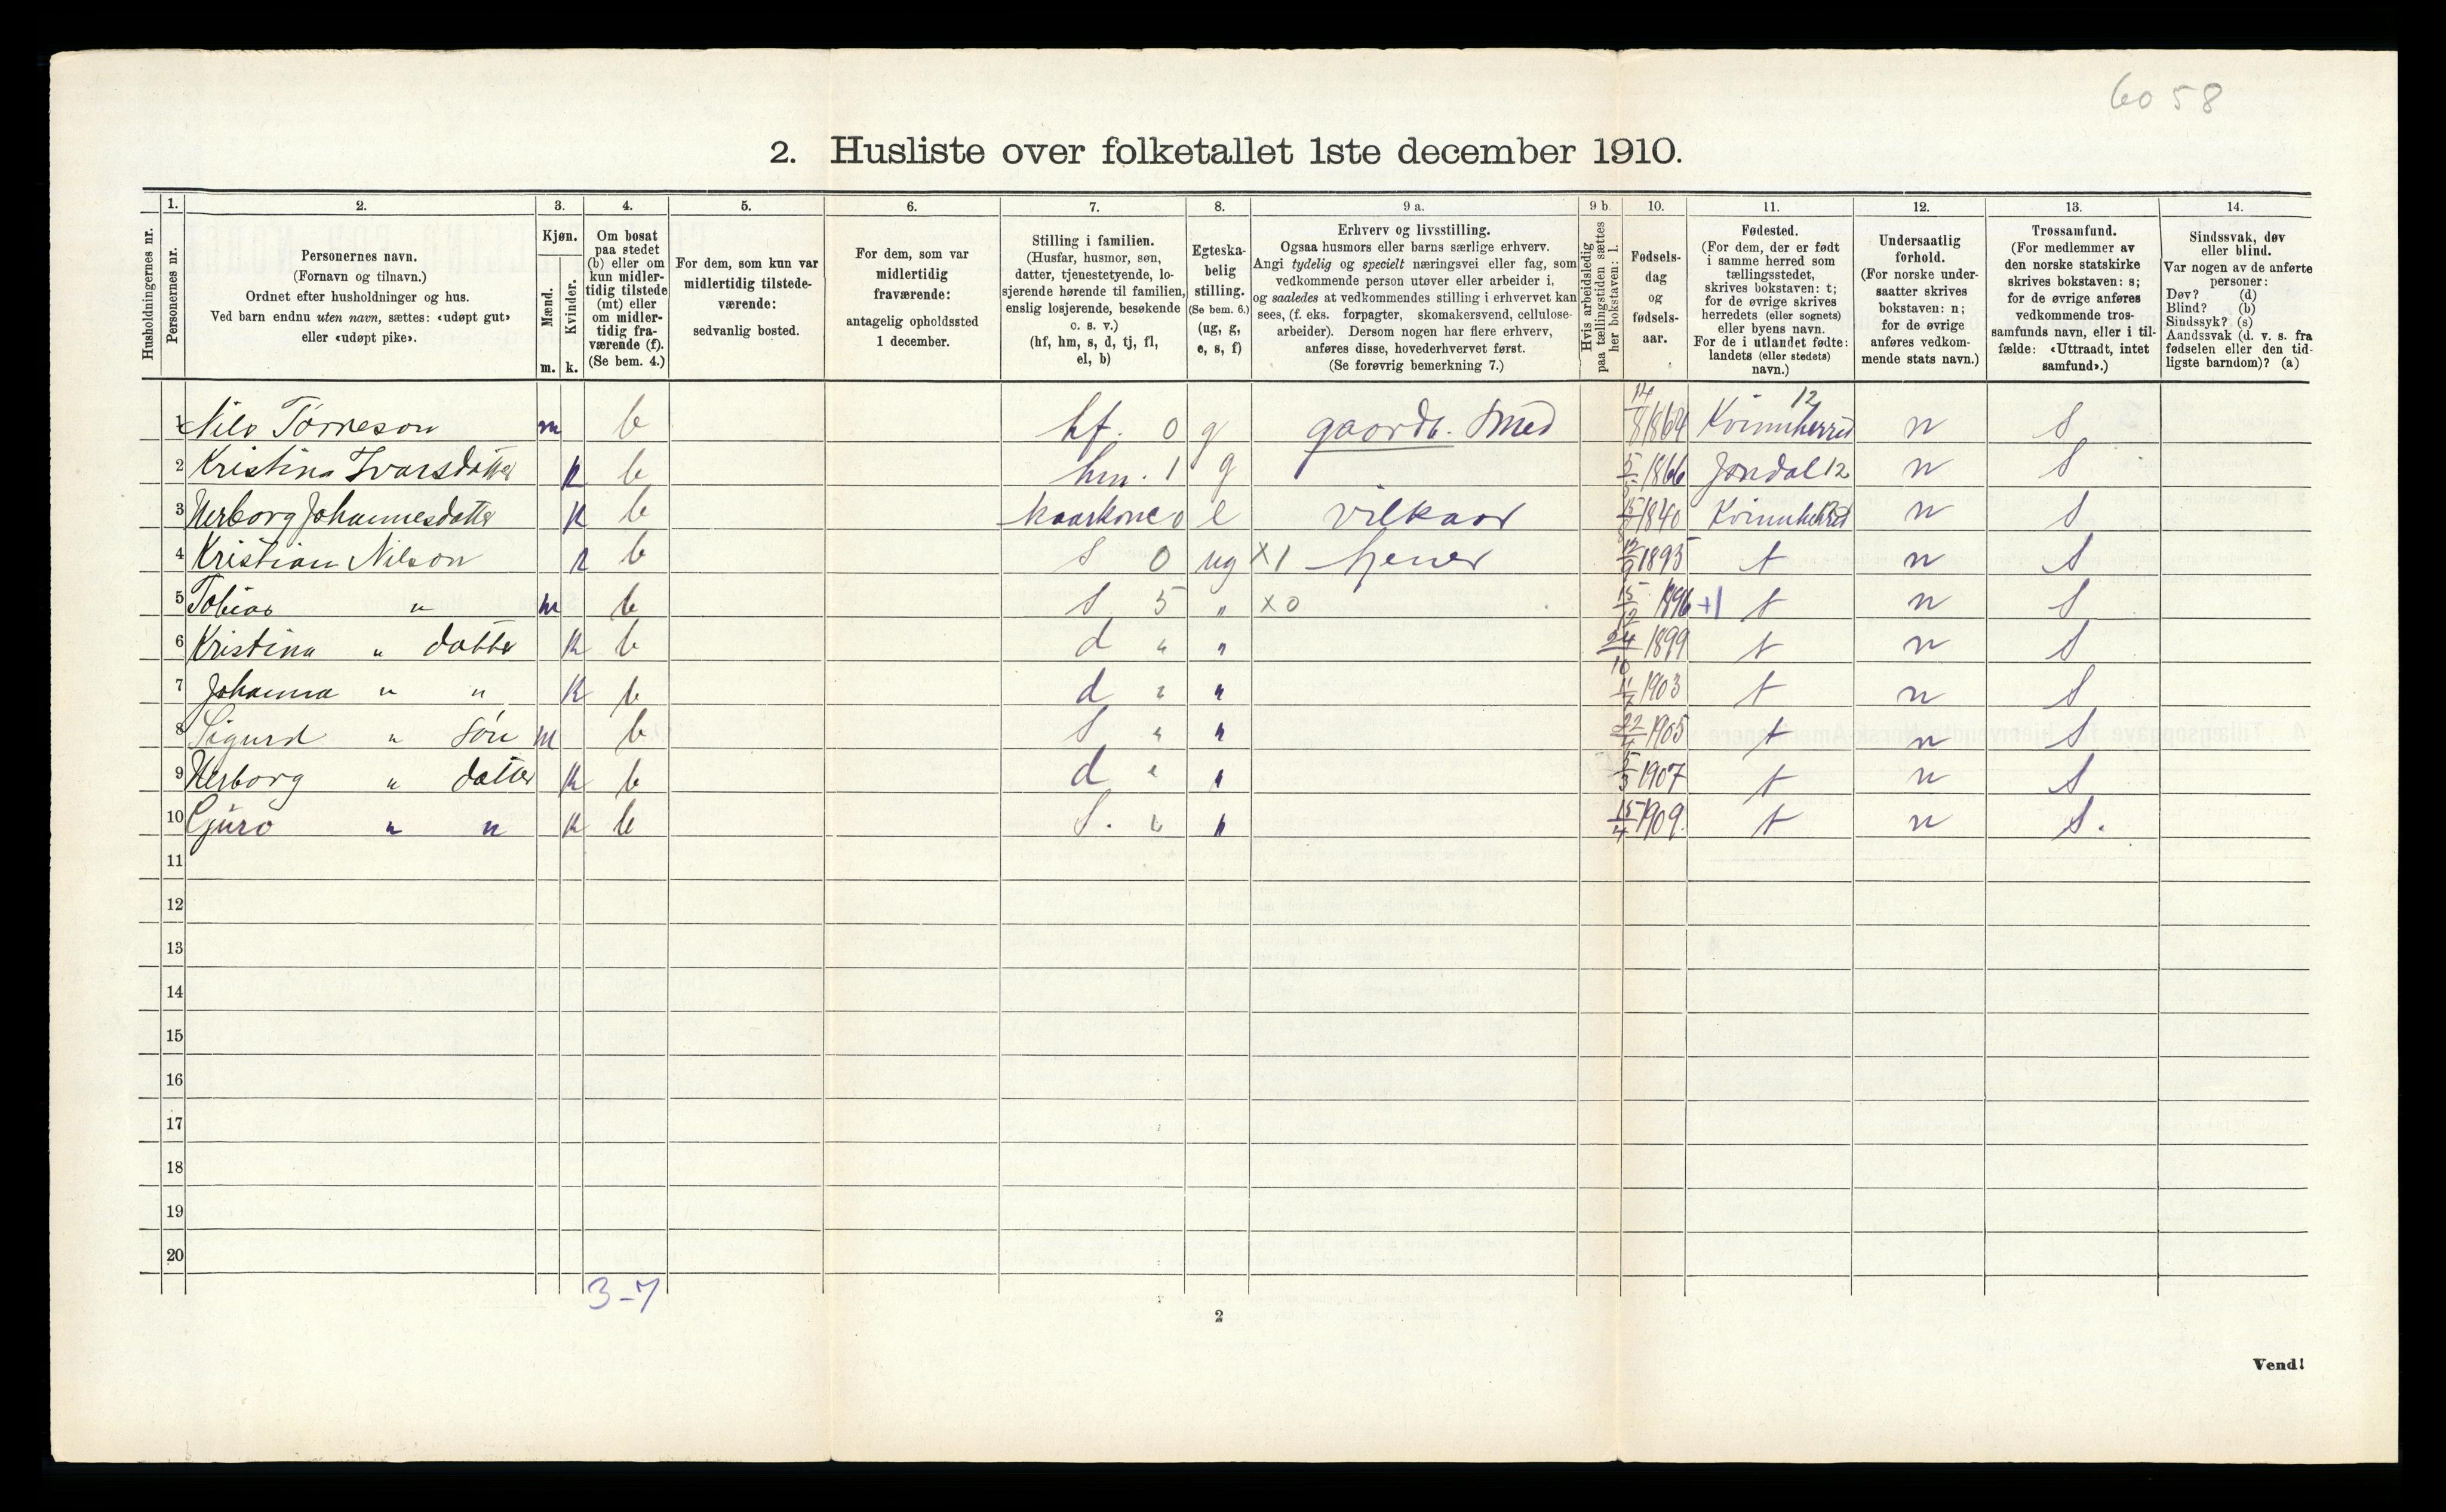 6058
2. Husliste over folketallet 1ste december 1910.
Husholdningernes nr.
1. Personernes nr.
2. Personernes navn.
(Fornavn og tilnavn.)
Ordnet efter husholdninger og hus.
Ved barn endnu uten navn, sættes: «udøpt gut»
eller «udøpt pike».
3. Kjøn.
Mænd. m.
Kvinder. k.
4. Om bosat
paa stedet
(b) eller om
kun midler-
tidig tilstede
(mt) eller
om midler-
tidig fra-
værende (f).
(Se bem. 4.)
5. For dem, som kun var
midlertidig tilstede-
værende:
sedvanlig bosted.
6. For dem, som var
midlertidig
fraværende:
antagelig opholdssted
1 december.
7. Stilling i familien.
(Husfar, husmor, søn,
datter, tjenestetyende, lo-
sjerende hørende til familien,
enslig losjerende, besøkende
o. s. v.)
(hf, hm, s, d, tj, fl,
el, b)
8. Egteska-
belig
stilling.
(Se bem. 6.)
(ug, g,
e, s, f)
9 a. Erhverv og livsstilling.
Ogsaa husmors eller barns særlige erhverv.
Angi tydelig og specielt næringsvei eller fag, som
vedkommende person utøver eller arbeider i,
og saaledes at vedkommendes stilling i erhvervet kan
sees, (f. eks. forpagter, skomakersvend, cellulose-
arbeider). Dersom nogen har flere erhverv,
anføres disse, hovederhvervet først.
(Se forøvrig bemerkning 7.)
9 b. Hvis arbeidsledig
paa tællingstiden sættes
her bokstaven: l.
10. Fødsels-
dag
og
fødsels-
aar.
11. Fødested.
(For dem, der er født
i samme herred som
tællingsstedet,
skrives bokstaven: t;
for de øvrige skrives
herredets (eller sognets)
eller byens navn.
For de i utlandet fødte:
landets (eller stedets)
navn.)
12. Undersaatlig
forhold.
(For norske under-
saatter skrives
bokstaven: n;
for de øvrige
anføres vedkom-
mende stats navn.)
13. Trossamfund.
(For medlemmer av
den norske statskirke
skrives bokstaven: s;
for de øvrige anføres
vedkommende tros-
samfunds navn, eller i til-
fælde: «Uttraadt, intet
samfund».)
14. Sindssvak, døv
eller blind.
Var nogen av de anførte
personer:
Døv? (d)
Blind? (b)
Sindssyk? (s)
Aandssvak (d. v. s. fra
fødselen eller den tid-
ligste barndom)? (a)
1 Nils Tørreson m b hf. 0 g gaardb. Smed 14/8 1864 Kvinnherred 12 n S
2 Kristina Ivarsdatter k b hm. 1 g 1866 Jondal 12 n S
3 Herborg Johannesdatter k b kaarkone 0 e vilkaar 1840 Kvinnherred n S
4 Kristian Nilson b S 0 ug x1 tjener 12/9 1895 t n S
5 Tobias " m b S 5 " x0 15/12 1896 +1 t n S
6 Kristina " datter k b d " " 24/10 1899 t n S
7 Johanna " " k b d " " 11/7 1903 t n S
8 Sigurd " Søn m b S " " 22/4 1905 t n S
9 Herborg " datter k b d " " 5/3 1907 t n S
10 Guro " " k b S. " " 15/4 1909. t n S.
11
12
13
14
15
16
17
18
19
20
3-7
2
Vend!